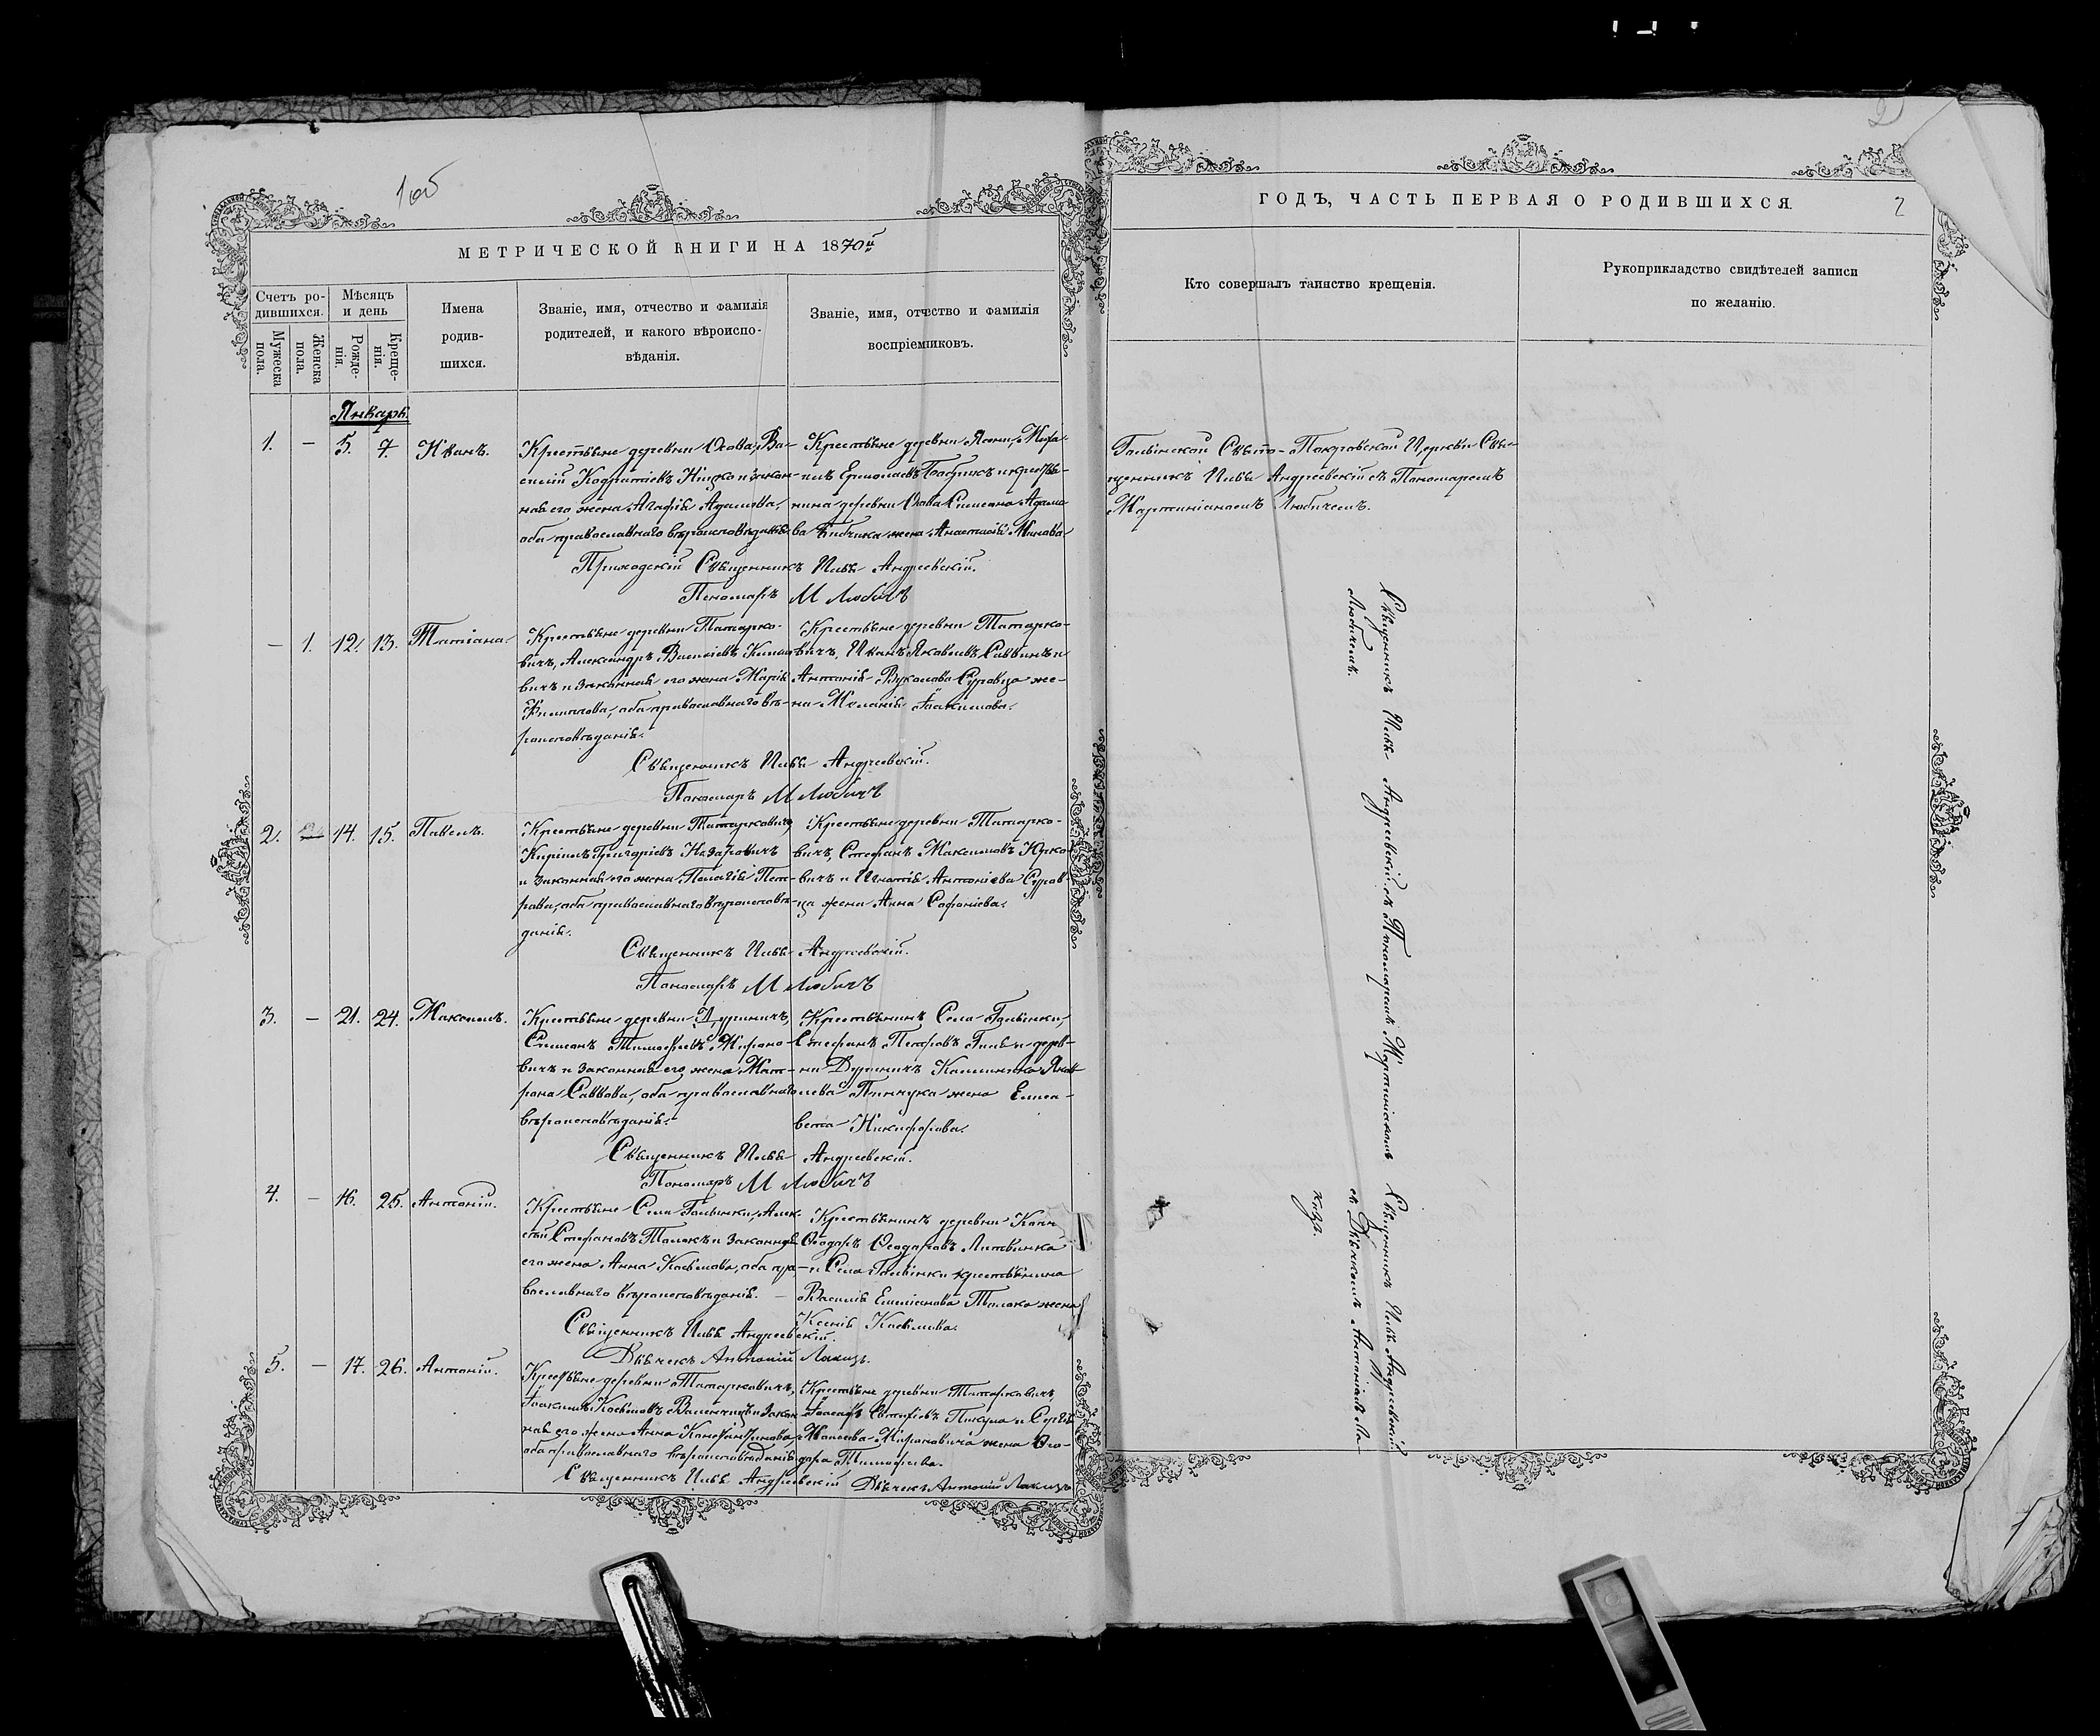 1об
2
МЕТРИЧЕСКОЙ КНИГИ НА 1870й
ГОДЪ, ЧАСТЬ ПЕРВАЯ О РОДИВШИХСЯ.
2
Счетъ ро-
дившихся.
Мужеска
пола.
Женска
пола.
Мѣсяцъ
и день
Рожде-
нія.
Креще-
нія.
Имена
родив-
шихся.
Званіе, имя, отчество и фамилія
родителей, и какого вѣроиспо-
вѣданія.
Званіе, имя, отчество и фамилія
воспріемниковъ.
Кто совершалъ таинство крещенія.
Рукоприкладство свидѣтелей записи
по желанію.
Январь.
1. — 5. 7. Иванъ.
Крестьяне деревни Ва-
силій Кодратіевъ и закон-
ная его жена Агафія Адамова,
оба православнаго вѣроисповѣданія
Крестьяне деревни Ясени,
Ермолаевъ и крестья-
нина деревни Симеона Адамо-
ва жена Анастасія Минова
Голынской Свято-Покровской Церкви Свя-
щенникъ Илья Андреевскій съ Пономаремъ
Мартиніаномъ Любичемъ.
Приходскій Священникъ Илья Андреевскій.
Пономарь М Любичъ
— 1. 12. 13. Татіана.
Крестьяне деревни Татарко-
вичъ, Александръ Василіевъ
вичъ и законная его жена Марія
оба православнаго вѣ-
роисповѣданія.
Крестьяне деревни Татарко-
вичъ, Иванъ Яковлевъ Саввинъ и
Антонія Вуколова Суровца же-
на Меланія Іоакимова.
Священникъ Илья Андреевскій.
Пономарь М Любичъ
2. 14. 15. Павелъ.
Крестьяне деревни Татарковичъ
Кирилъ Григоріевъ Назаровичъ
и законная его жена Пелагія Пет-
рова, оба православнаго вѣроисповѣ-
данія.
Крестьяне деревни Татарко-
вичъ, Стефанъ Максимовъ Юрко-
вичъ и Игнатія Антоніева Суров-
ца жена Анна Софоніева.
Священникъ Илья Андреевскій.
Пономарь М Любичъ
3. — 21. 24. Максимъ.
Крестьяне деревни Дуриничъ,
Симеонъ Тимофеевъ Мироно-
вичъ и законная его жена Мат-
рона Саввова, оба православнаго
вѣроисповѣданія.
Крестьянинъ Села Голынки,
Стефанъ Петровъ и дерев-
ни Дуриничъ Яков-
лева Пинчука жена Елиса-
вета Никифорова.
Священникъ Илья Андреевскій.
Пономарь М Любичъ
4. — 16. 25. Антоній.
Крестьяне Села Голынки, Алек-
сѣй Стефановъ Толокъ и законная
его жена Анна Косьмова, оба пра-
вославнаго вѣроисповѣданія. —
Крестьянинъ деревни
Ѳеодоръ Ѳеодоровъ Литвинко
и Села Голынки крестьянина
Василія Емиліанова Толока жена
Ксенія Косьмова.
Священникъ Илья Андреевскій.
Дьячекъ Антоній Лакизъ.
5. — 17. 26. Антоній.
Крестьяне деревни Татарковичъ,
Іоакимъ Косьмовъ и закон-
ная его жена Анна Константинова,
оба православнаго вѣроисповѣданія
Крестьяне деревни Татарковичъ
Іосифъ Пикула и Сергія
Моисеева Мироновича жена Ѳео-
дора Тимофеева.
Священникъ Илья Андреевскій Дьячекъ Антоній Лакизъ
Священникъ Илья Андреевскій съ Пономаремъ Мартиніаномъ
Любичемъ.
Священникъ Илья Андреевскій
съ Дьячкомъ Антоніемъ Ла-
кизъ.